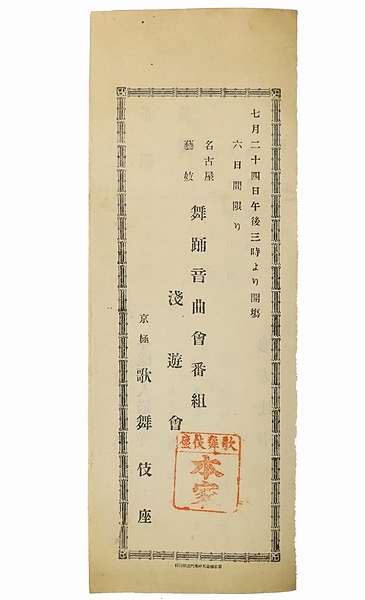 七月二十四日午後三時より開場
六日間限り
名古屋
藝妓
舞踊音曲會番組
淺遊會
京極
歌舞伎座
歌舞伎座
本家